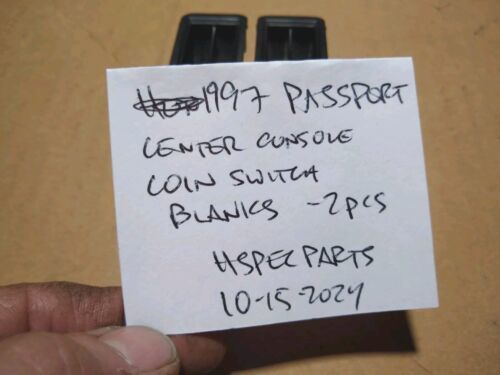 1997 PASSPORT
CENTER CONSOLE
COIN SWITCH
BLANKS -2pcs
HSPEC PARTS
10-15-2024